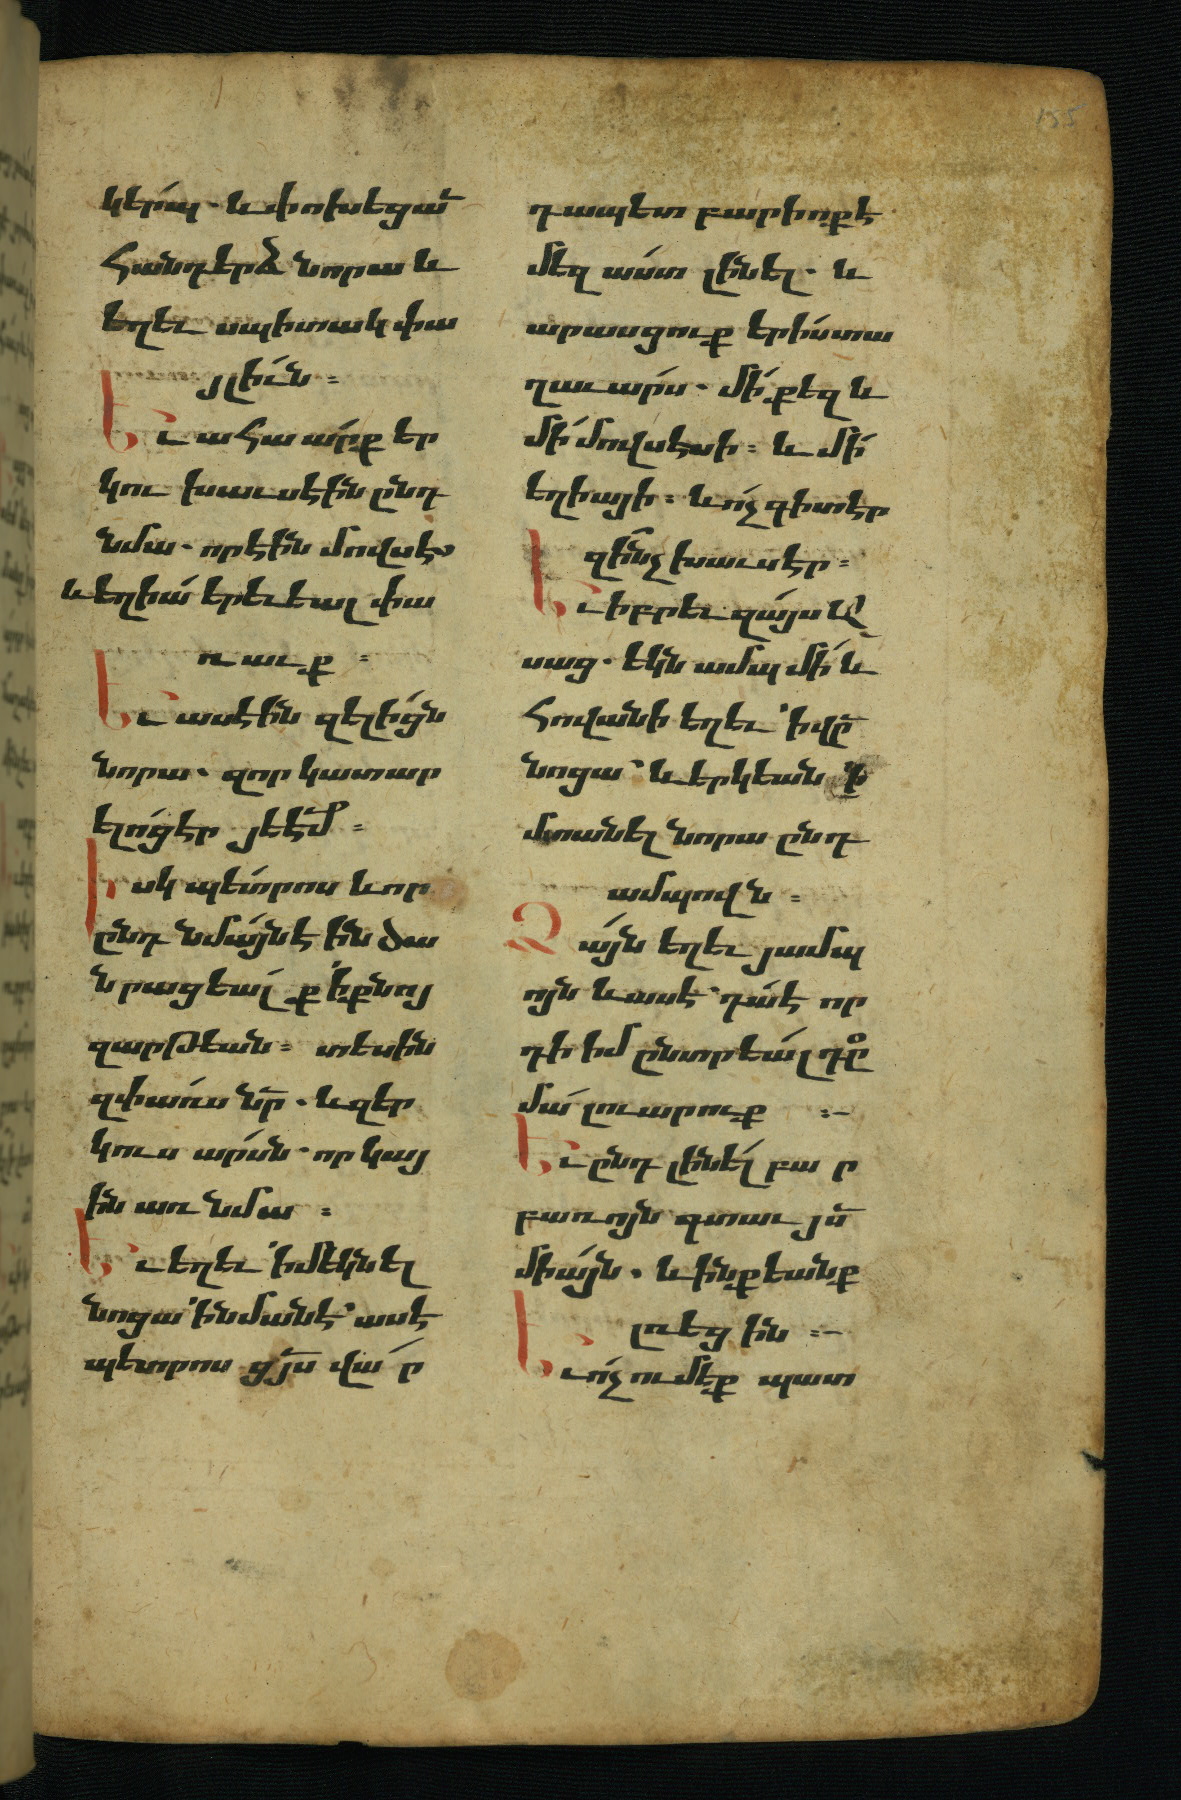 155
կերպ. և փոխեցաւ̅
Հանդերձ նորա և
եղեւ սպիտակ փա
յլիւն։
Եւ ահա արք եր
կու խաւսէին ընդ
նմա. որ էին մովսէս
և եղիա երեւեալ փա
ռաւք։
Եւ ասէին զելիցն
նորա. զոր կատար
ելոց էր յեէմ̅։
Իսկ պետրոս և որ
ընդ նմայն է ին ծա
նրացեալ ք ի քնոյ
զարթեան։ տեսին
զփառս նր̅. և զեր
կուս արսն. որ կայ
ին առ նմա։
Եւ եղեւ ի մեկնել
նոցա ի նմանէ ասէ
պետրոս ցյս̅ վա ր
դապետ բարիոք է
մեզ աստ լինել. և
արասցուք երիս տա
ղաւարս. մի քեզ և
մի մովսէսի։ և մի
եղիայի։ և ոչ գիտէր
զինչ խաւսէր։
Եւ իբրեւ զայս ա
սաց. եկն ամպ մի և
Հովանի եղեւ ի վր̅
նոցա և երկեան ի
մտանել նորա ընդ
ամպովն։
Ձայն եղեւ յամպ
ոյն և ասէ դա է որ
դի իմ ընտրեալ դը̅
մա լուարուք :~
Եւ ընդ լինել բա ր
բառոյն գտաւ յս̅
միայն. և ինքեանք
լռեց ին :~
Եւ ոչ ումեք պատ